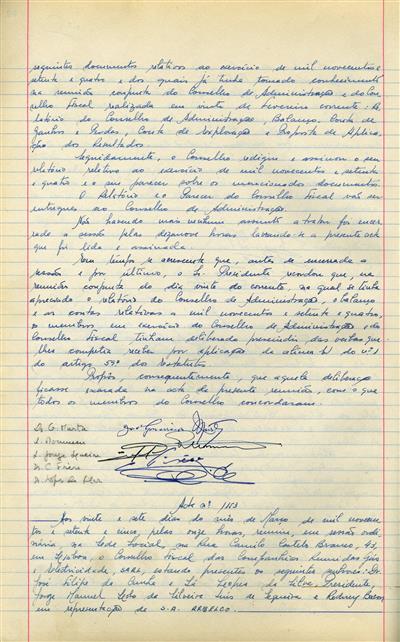 seguintes documentos relativos ao exercício de mil novecentos e
setenta e quatro e dos quais já tinha tomado conhecimento
na reunião conjunta do Conselho de Administração e do Con-
selho Fiscal realizada em vinte de Fevereiro corrente: Re-
latório do Conselho de Administração, Balanço, Conta de
Ganhos e Perdas, Conta de Exploração e Proposta de Aplica-
ção dos Resultados
Seguidamente, o Conselho redigiu e assinou o seu
relatório relativo ao exercício de mil novecentos e setenta
e quatro e o seu parecer sobre os mencionados documentos.
O Relatório e o Parecer do Conselho Fiscal vão ser
entregues ao Conselho de Administração.
Não havendo mais nenhum assunto a tratar foi encer-
rada a sessão pelas dezanove horas, lavrando-se a presente acta
que foi lida e assinada.
Em tempo se acrescenta que, antes de encerrada a
sessão e por último, o Sr. Presidente recordou que, na
reunião conjunta do dia vinte do corrente, na qual se tinha
apreciado o relatório do Conselho de Administração, o balanço
e as contas relativas a mil novecentos e setenta e quatro,
os membros em exercício do Conselho de Administração e do
Conselho Fiscal tinham deliberado prescindir das verbas que
lhes competia receber por aplicação da alínea b) do nº 1
do artigo 59º dos Estatutos.
Propôs, consequentemente, que aquela deliberação
ficasse exarada na acta da presente reunião, com o que
todos os membros do Conselho concordaram.
Dr. G. Martin
Jorge Siqueira
C. Freire
Dr. Lopes da Silva
Acta nº 1153
Aos vinte e sete dias do mês de Março de mil novecen-
tos e setenta e cinco, pelas onze horas, reuniu, em sessão ordi-
nária, na Sede Social, na Rua Camilo Castelo Branco, 43,
em Lisboa, o Conselho Fiscal das Companhias Reunidas Gás
e Electricidade, SARL, estando presentes os seguintes senhores: Dr.
José Filipe da Cunha e Sá Lopes da Silva, Presidente,
Jorge Manuel de Oliveira Luís de Siqueira e
em representação de S.A.